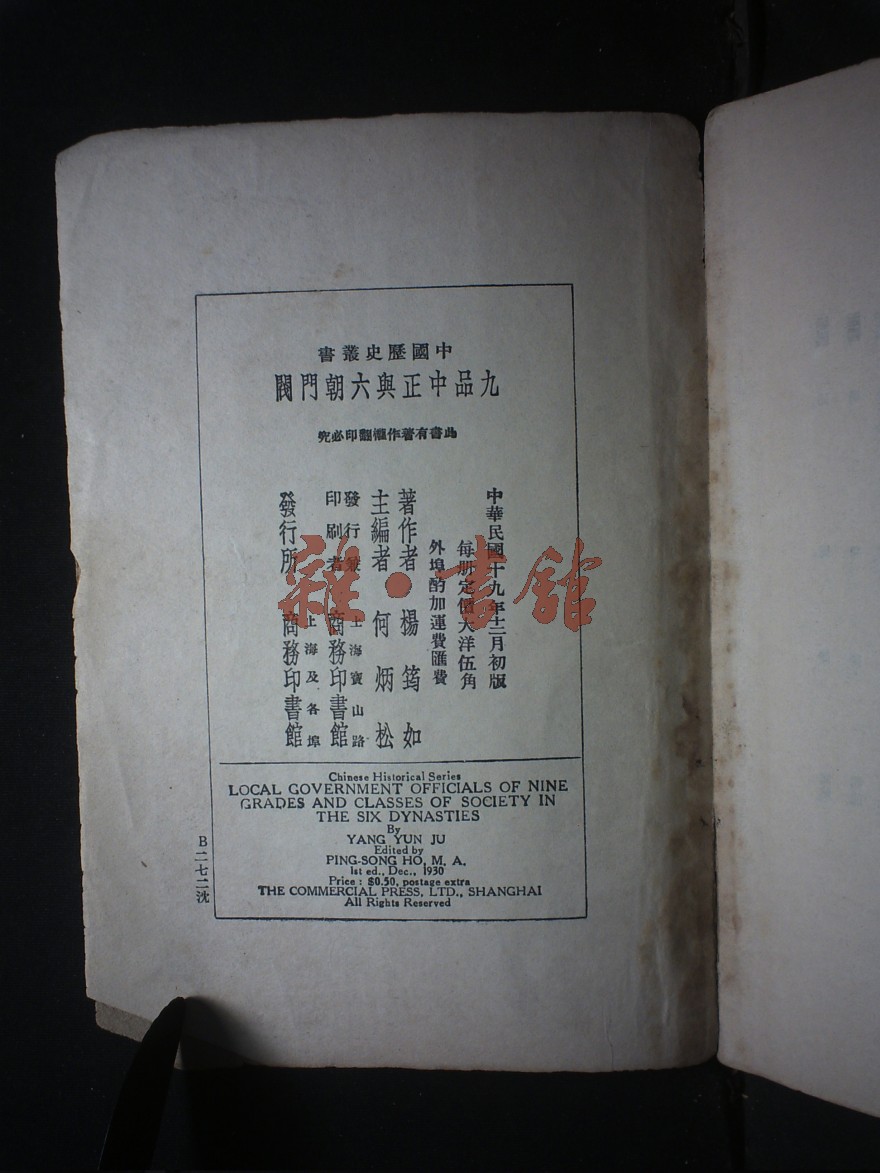 中國歷史叢書
九品中正與六朝門閥
此書有著作權翻印必究
中華民國十九年十二月初版
每册定價大洋伍角
外埠酌加運費匯費
著作者 楊筠如
主編者 何炳松
發行兼印刷者 上海寶山路 商務印書館
發行所 上海及各埠 商務印書館
Chinese Historical Series
LOCAL GOVERNMENT OFFICIALS OF NINE
GRADES AND CLASSES OF SOCIETY IN
THE SIX DYNASTIES
By
YANG YUN JU
Edited by
PING-SONG HO, M. A.
1st ed., Dec., 1930
Price : $0.50, postage extra
THE COMMERCIAL PRESS, LTD., SHANGHAI
All Rights Reserved
B二七二沈
雜·書館